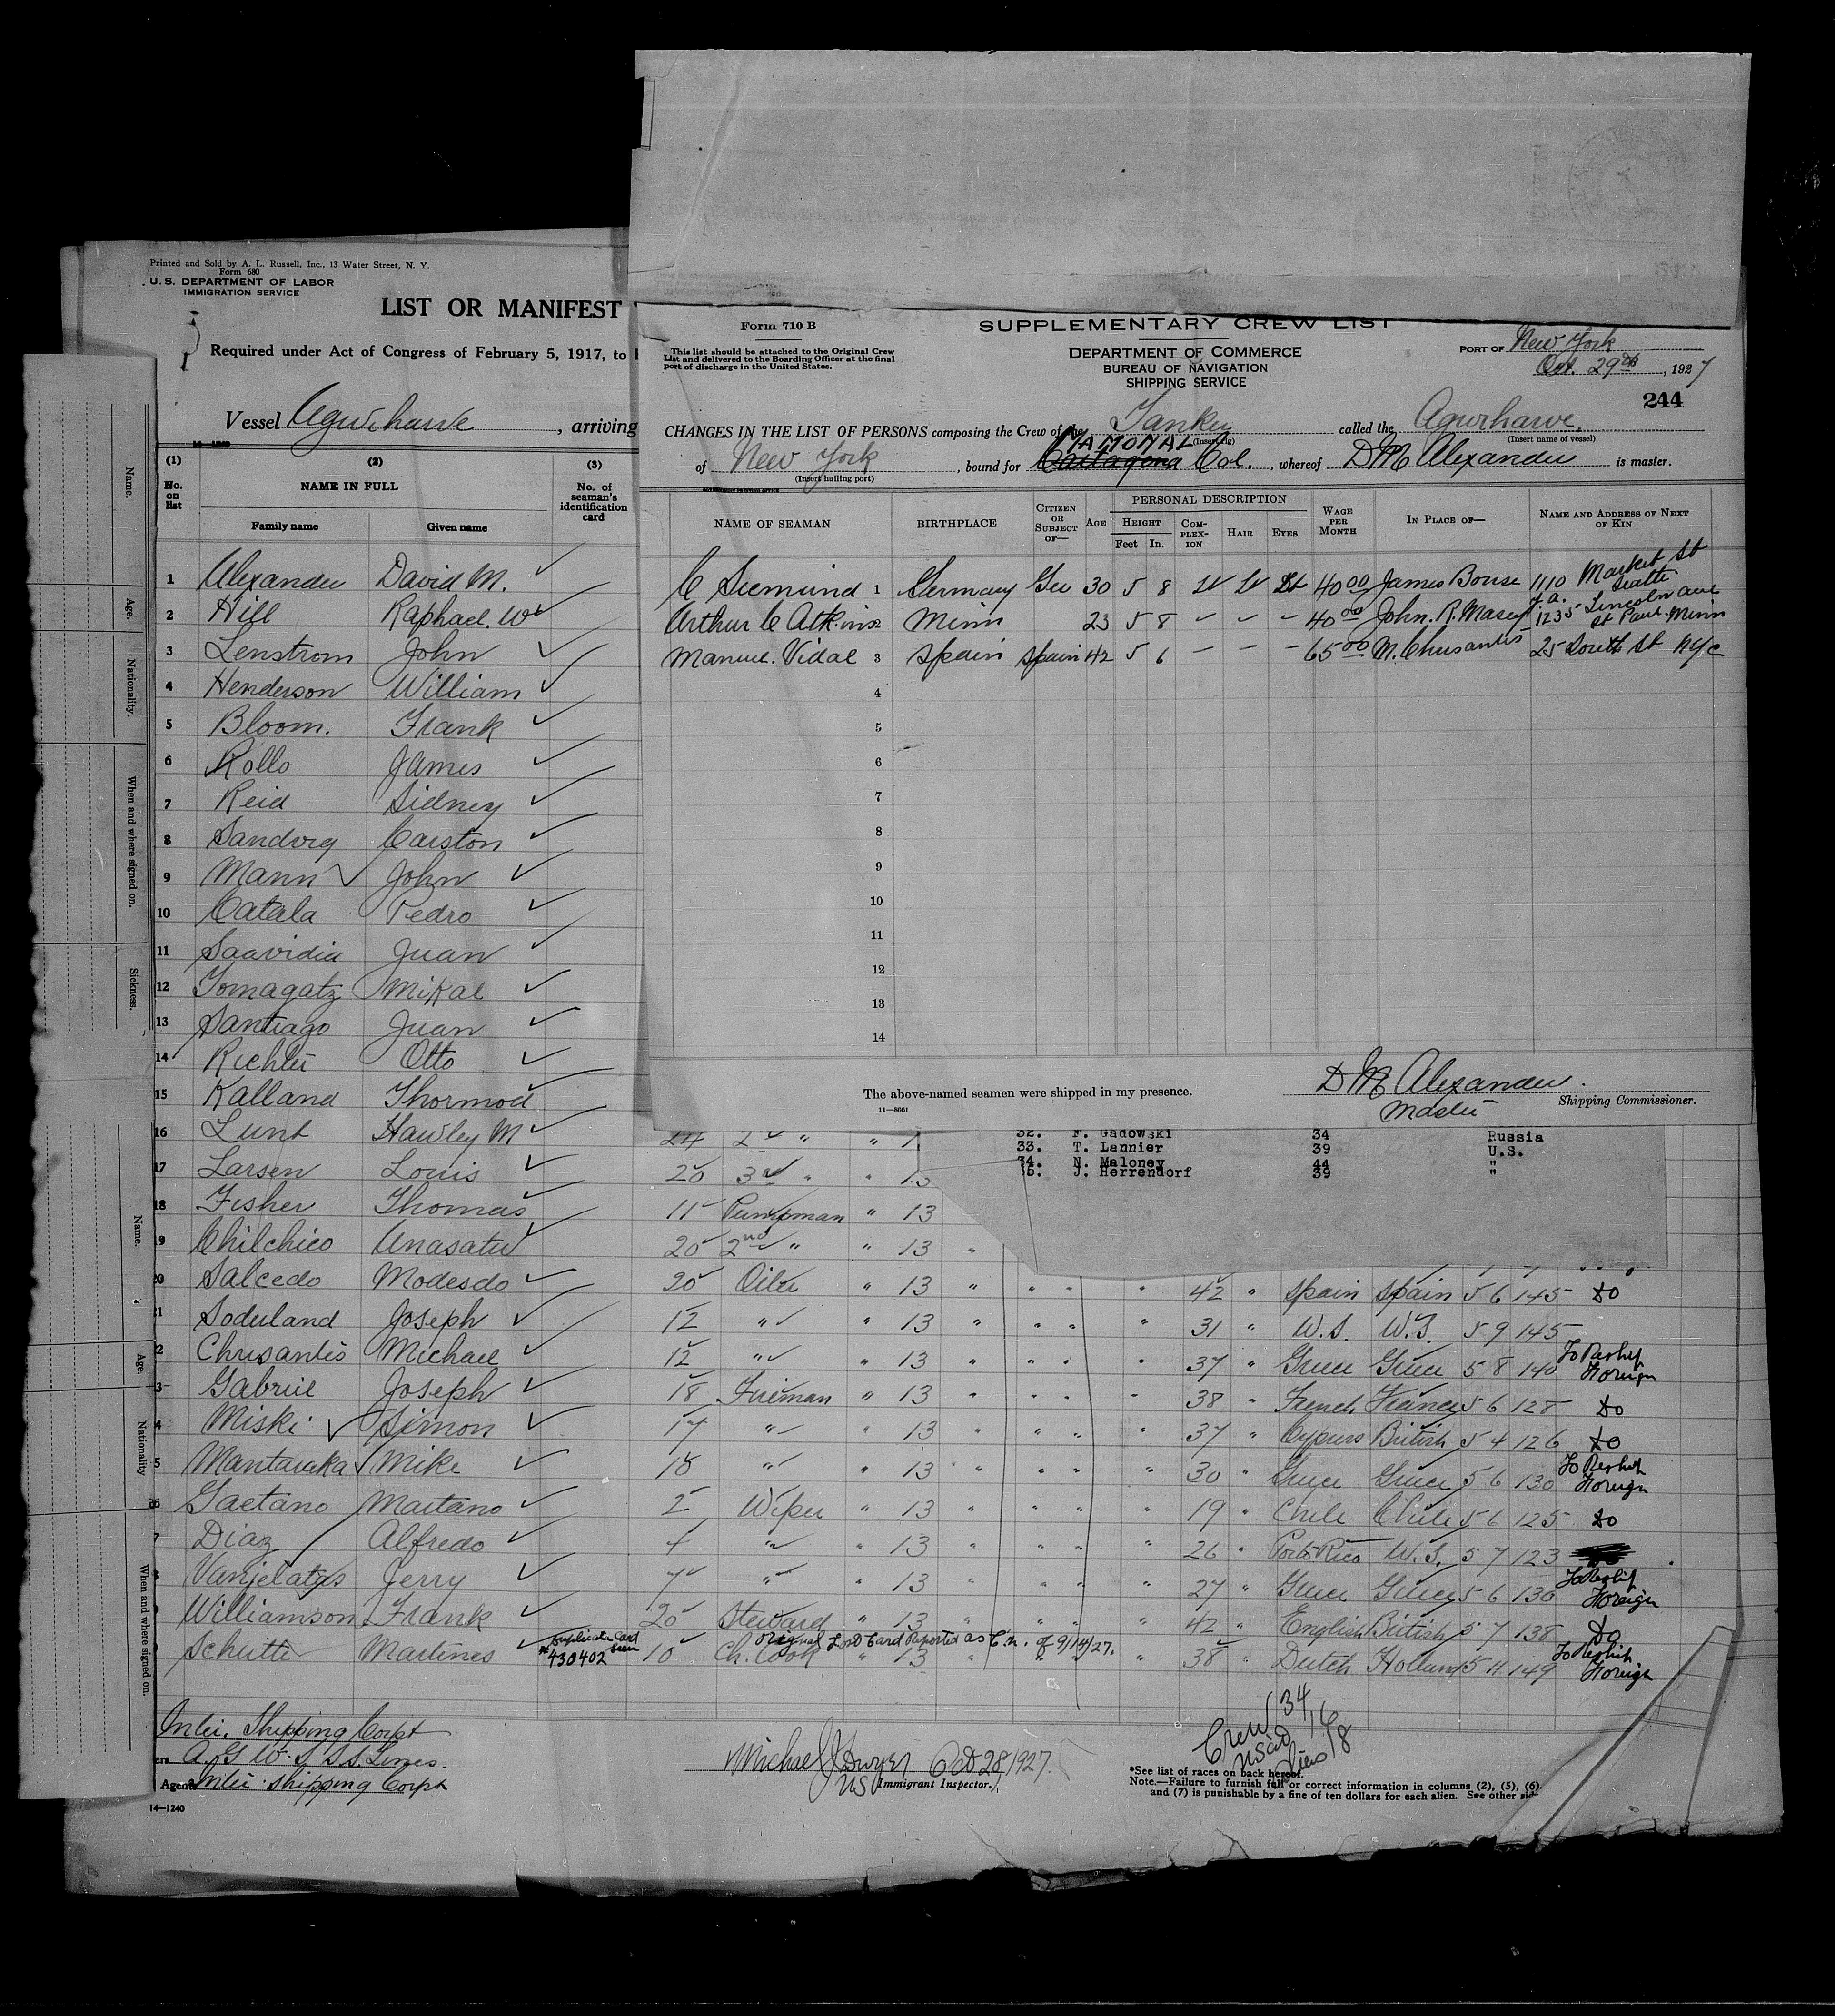 Printed and Sold by A. L. Russell, Inc., 13 Water Street, N. Y.
Form 680
U. S. DEPARTMENT OF LABOR
IMMIGRATION SERVICE
LIST OR MANIFEST
Required under Act of Congress of February 5, 1917, to
Vessel Agwihavre, arriving
14-1240
(1) (2) (3)
No. on list
NAME IN FULL
No. of seaman's identification card
Family name Given name
1 Alexander David M.
2 Hill Raphael. W
3 Lenstrom John
4 Henderson William
5 Bloom. Frank
6 Rollo James
7 Reid Sidney
8 Sandvig Carston
9 Mann John
10 Catala Pedro
11 Saavidia Juan
12 Tomagatz Mikal
13 Santiago Juan
14 Richter Otto
15 Kalland Thormod
16 Lunt Hawley M 24 2 " "
17 Larsen Louis 20 3rd " "
18 Fisher Thomas 11 Pumpman " 13
19 Chilchico 20 2nd " " 13 "
20 Salcedo Modesdo 20 Oiler " 13 " " " " 42 " Spain Spain 5 6 145 Do
21 Soderland Joseph 12 " " 13 " " " " 31 " U.S. U.S. 5 9 145
2 Chrisantis Michael 12 " " 13 " " " " 37 " Greece Greece 5 8 140 To Reship Foreign
3 Gabriel Joseph 18 Fireman " 13 " " " " 38 " French France 5 6 128 Do
4 Miski Simon 17 " " 13 " " " " 37 " Cyprus British 5 4 126 Do
5 Mantaraka Mike 18 " " 13 " " " " 30 " Greece Greece 5 6 130 To Reship Foreign
26 Gaetano Maitano 2 Wiper " 13 " " " " 19 " Chile Chile 5 6 125 Do
7 Diaz Alfredo 4 " " 13 " " " 26 " Porto Rico U.S. 5 7 123
Vanjelatos Jerry 7 " " 13 " " " " 27 " Greece Greece 5 6 130 To Reship Foreign
Williamson Frank 20 Steward " 13 " " " " 42 " English British 5 7 138 Do
Schutte Martines Duplicate Card seen # 430402 10 Ch. Cook " 13 " " " " 38 " Dutch Holland 5 11 149 To Reship Foreign
Original Lost Card Reported as C.N. of 9/14/27.
Inter. Shipping Corpt
A. G W. I S.S. Lines.
Agents Inter. Shipping Corpt
14—1240
Michael J Dwyer Oct 28/1927.
US Immigrant Inspector.
Crew 34
USCit 16
Aliens 18
*See list of races on back hereof.
Note.—Failure to furnish full or correct information in columns (2), (5), (6)
and (7) is punishable by a fine of ten dollars for each alien. See other sid
Form 710 B
This list should be attached to the Original Crew
List and delivered to the Boarding Officer at the final
port of discharge in the United States.
SUPPLEMENTARY CREW LIST
DEPARTMENT OF COMMERCE
BUREAU OF NAVIGATION
SHIPPING SERVICE
PORT OF New York
Oct. 29th, 1927
244
CHANGES IN THE LIST OF PERSONS composing the Crew of the Tanker called the Agwihavre.
(Insert rig) (Insert name of vessel)
of New York, bound for Cartagena MAMONAL Col., whereof D M Alexander is master.
(Insert hailing port)
GOVERNMENT PRINTING OFFICE
NAME OF SEAMAN
BIRTHPLACE
CITIZEN OR SUBJECT OF—
AGE
PERSONAL DESCRIPTION
HEIGHT
Feet In.
COMPLEXION
HAIR
EYES
WAGE PER MONTH
IN PLACE OF—
NAME AND ADDRESS OF NEXT OF KIN
C Siemund 1 Germany Ger 30 5 8 Lt Lt Lt 40 00 James Bouse 1110 Market St Seattle
Arthur C Atkins 2 Minn 23 5 8 - - - 40 00 John. R. Masey 1235 Lincoln ave St Paul. Minn
Manuel. Vidal 3 Spain Spain 42 5 6 - - - 65 00 M. Chrisantis 25 South St NYC
4
5
6
7
8
9
10
11
12
13
14
The above-named seamen were shipped in my presence.
11—8661
D M Alexander.
Master Shipping Commissioner.
32. F. Gadowski 34 Russia
33. T. Lannier 39 U.S.
34. N. Maloney 44 "
5. J. Herrendorf 39 "
Name.
Age.
Nationality.
When and where signed on.
Sickness.
Name.
Age.
Nationality
When and where signed on.